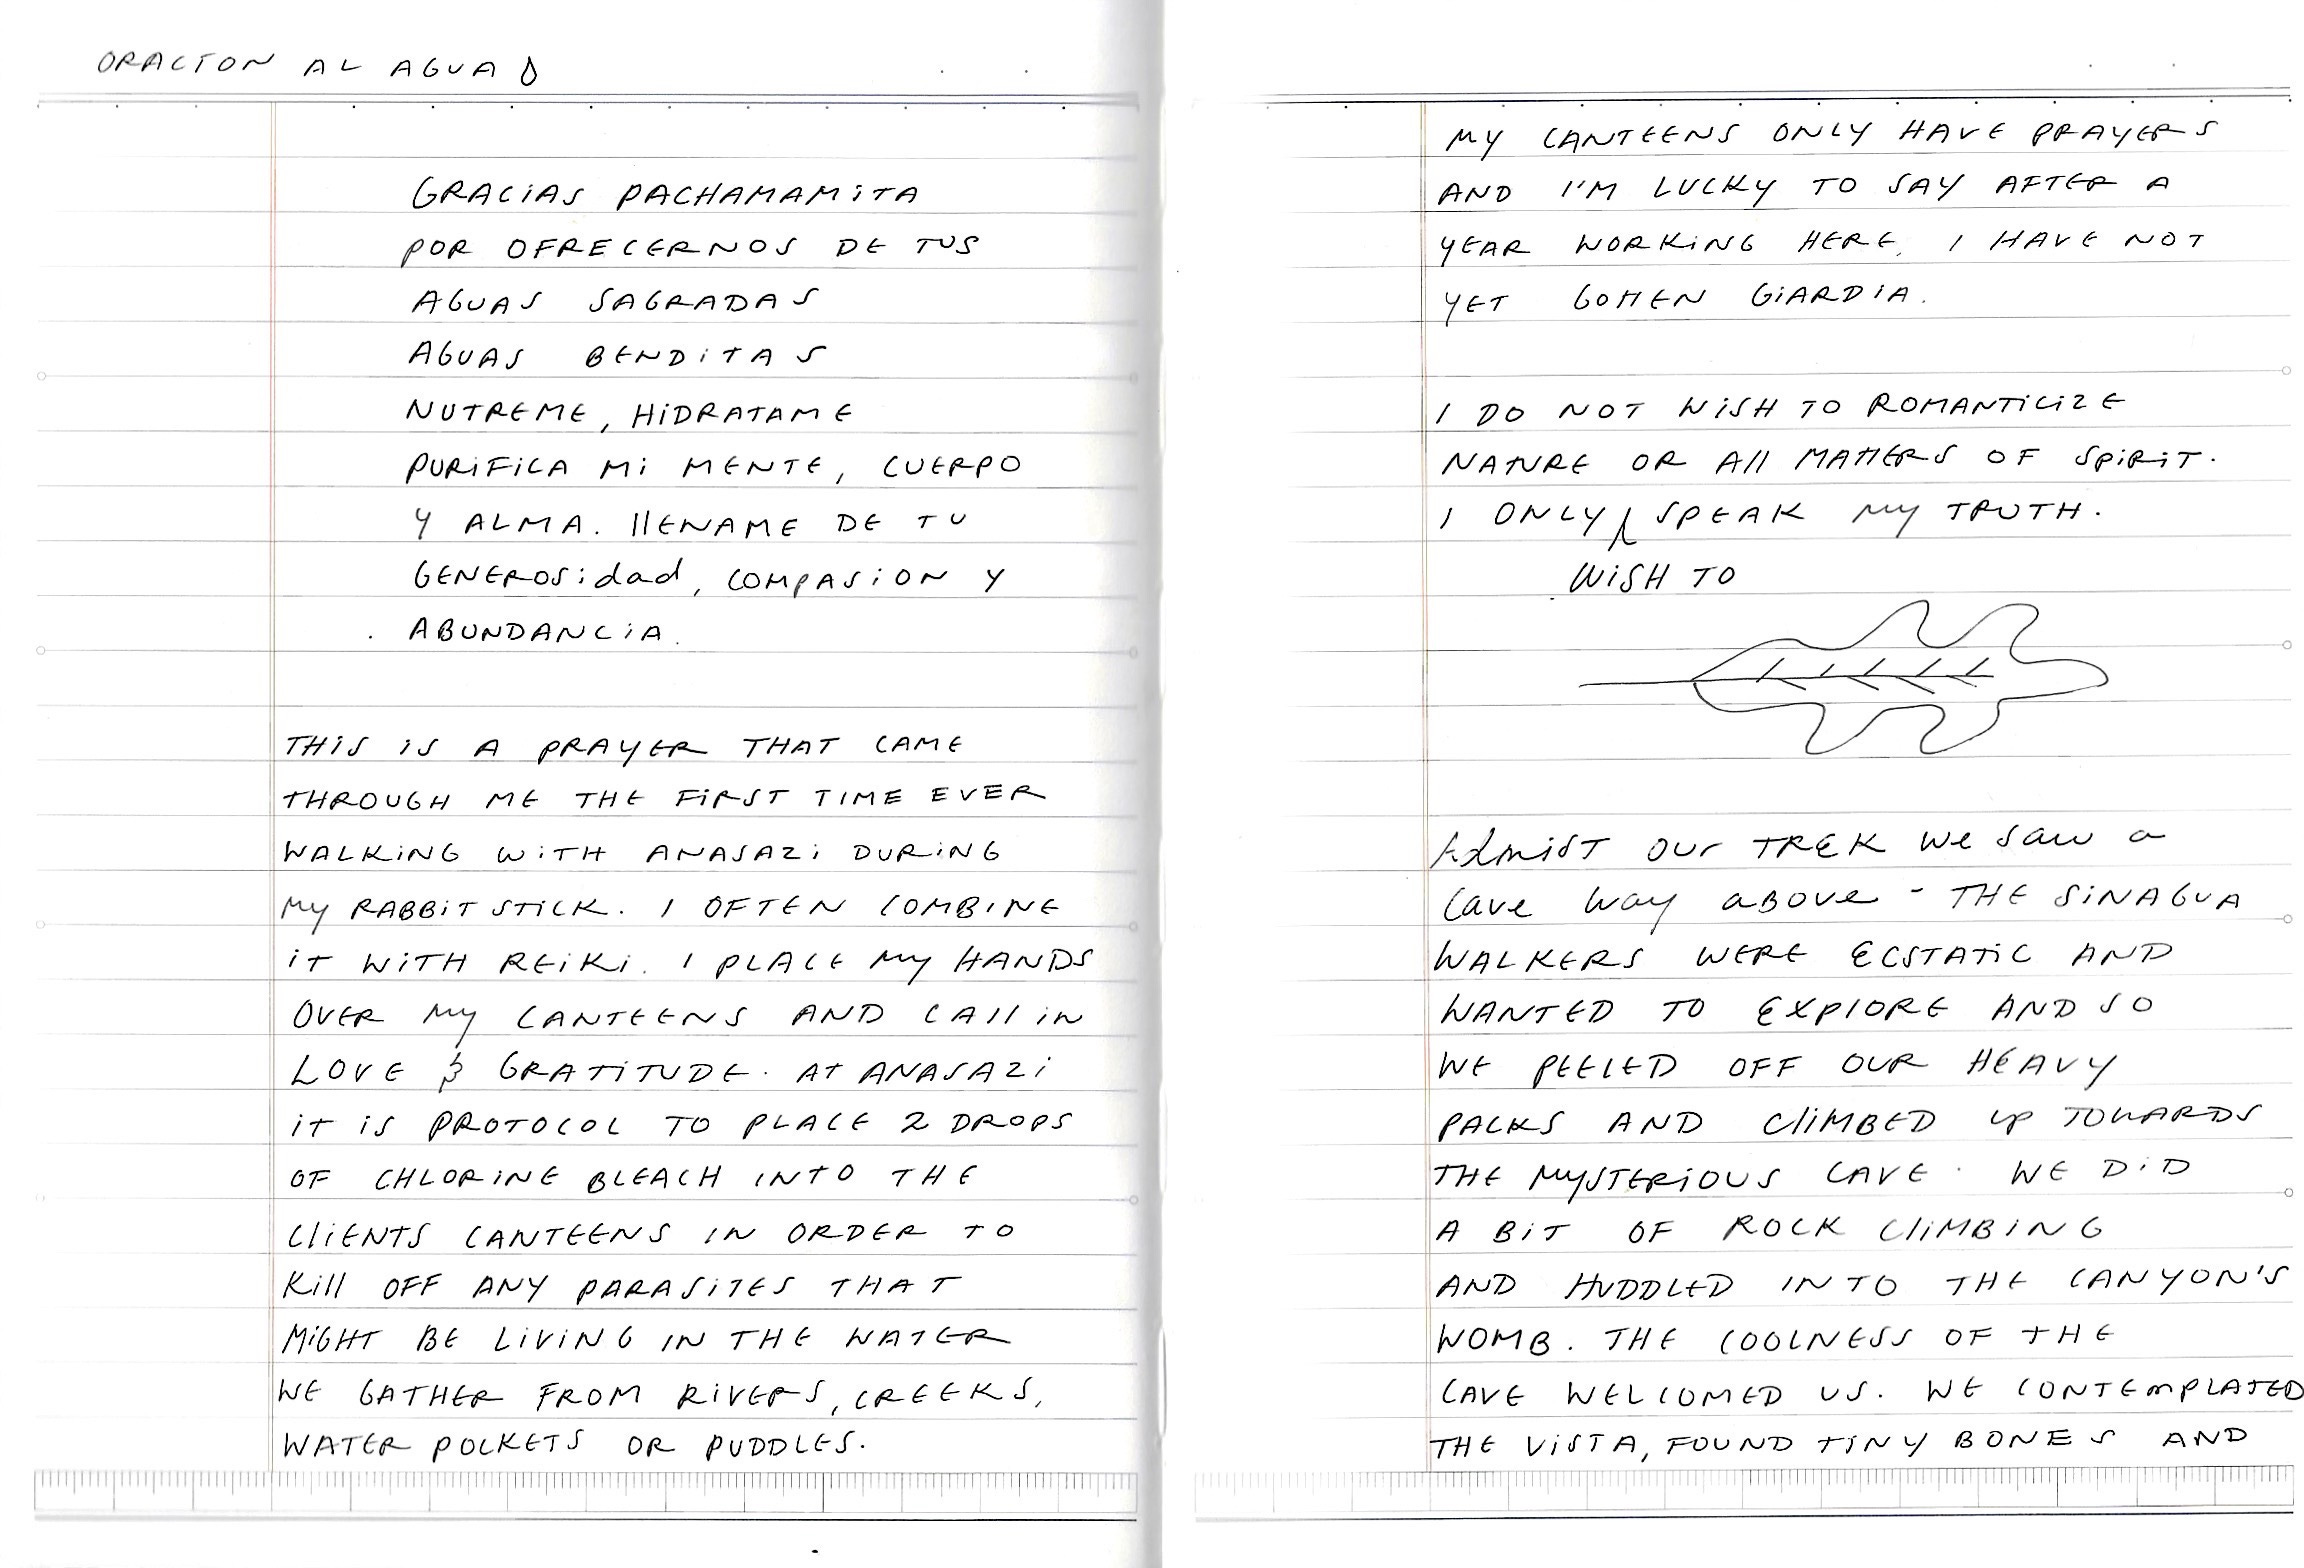 ORACION AL AGUA
GRACIAS PACHAMAMITA
POR OFRECERNOS DE TUS
AGUAS SAGRADAS
AGUAS BENDITAS
NUTREME, HIDRATAME
PURIFICA MI MENTE, CUERPO
Y ALMA. LLENAME DE TU
GENEROSidad, COMPASION Y
ABUNDANCIA.
THIS IS A PRAYER THAT CAME
THROUGH ME THE FIRST TIME EVER
WALKING WITH ANASAZI DURING
MY RABBIT STICK. I OFTEN COMBINE
IT WITH REIKI. I PLACE MY HANDS
OVER MY CANTEENS AND CALL IN
LOVE & GRATITUDE. AT ANASAZI
IT IS PROTOCOL TO PLACE 2 DROPS
OF CHLORINE BLEACH INTO THE
CLIENTS CANTEENS IN ORDER TO
KILL OFF ANY PARASITES THAT
MIGHT BE LIVING IN THE WATER
WE GATHER FROM RIVERS, CREEKS,
WATER POCKETS OR PUDDLES.
MY CANTEENS ONLY HAVE PRAYERS
AND I'M LUCKY TO SAY AFTER A
YEAR WORKING HERE, I HAVE NOT
YET GOTTEN GIARDIA.
I DO NOT WISH TO ROMANTICIZE
NATURE OR ALL MATTERS OF SPIRIT.
I ONLY SPEAK MY TRUTH.
WISH TO
Admist our TREK we saw a
cave way above - THE SINAGUA
WALKERS WERE ECSTATIC AND
WANTED TO EXPLORE AND SO
WE PEELED OFF OUR HEAVY
PACKS AND CLIMBED UP TOWARDS
THE MYSTERIOUS CAVE. WE DID
A BIT OF ROCK CLIMBING
AND HUDDLED INTO THE CANYON'S
WOMB. THE COOLNESS OF THE
CAVE WELCOMED US. WE CONTEMPLATED
THE VISTA, FOUND TINY BONES AND